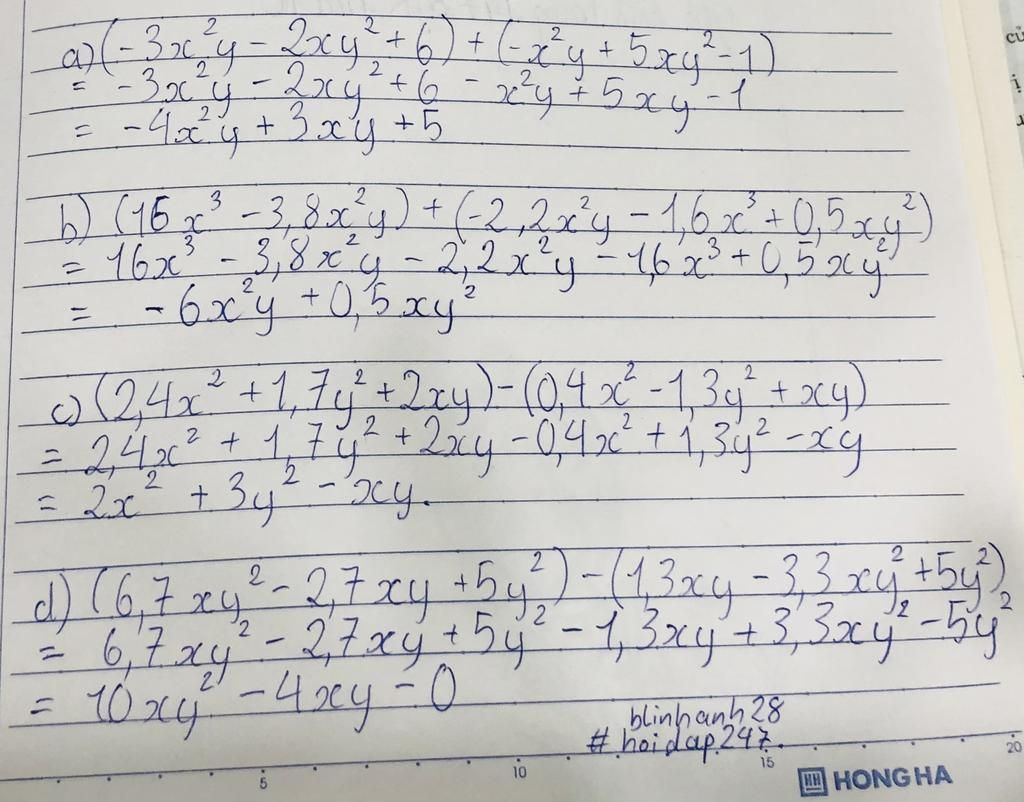 a) (-3x²y - 2xy² + 6) + (-x²y + 5xy² - 1)
= -3x²y - 2xy² + 6 - x²y + 5xy - 1
= -4x²y + 3xy + 5
b) (16x³ - 3,8x²y) + (-2,2x²y - 1,6x³ + 0,5xy²)
= 16x³ - 3,8x²y - 2,2x²y - 1,6x³ + 0,5xy²
= - 6x²y + 0,5xy²
c) (2,4x² + 1,7y² + 2xy) - (0,4x² - 1,3y² + xy)
= 2,4x² + 1,7y² + 2xy - 0,4x² + 1,3y² - xy
= 2x² + 3y² - xy.
d) (6,7xy² - 2,7xy + 5y²) - (1,3xy - 3,3xy² + 5y²)
= 6,7xy² - 2,7xy + 5y² - 1,3xy + 3,3xy² - 5y²
= 10xy² - 4xy - 0
blinhanh28
# hoidap247.
5 10 15 20
HH HONG HA